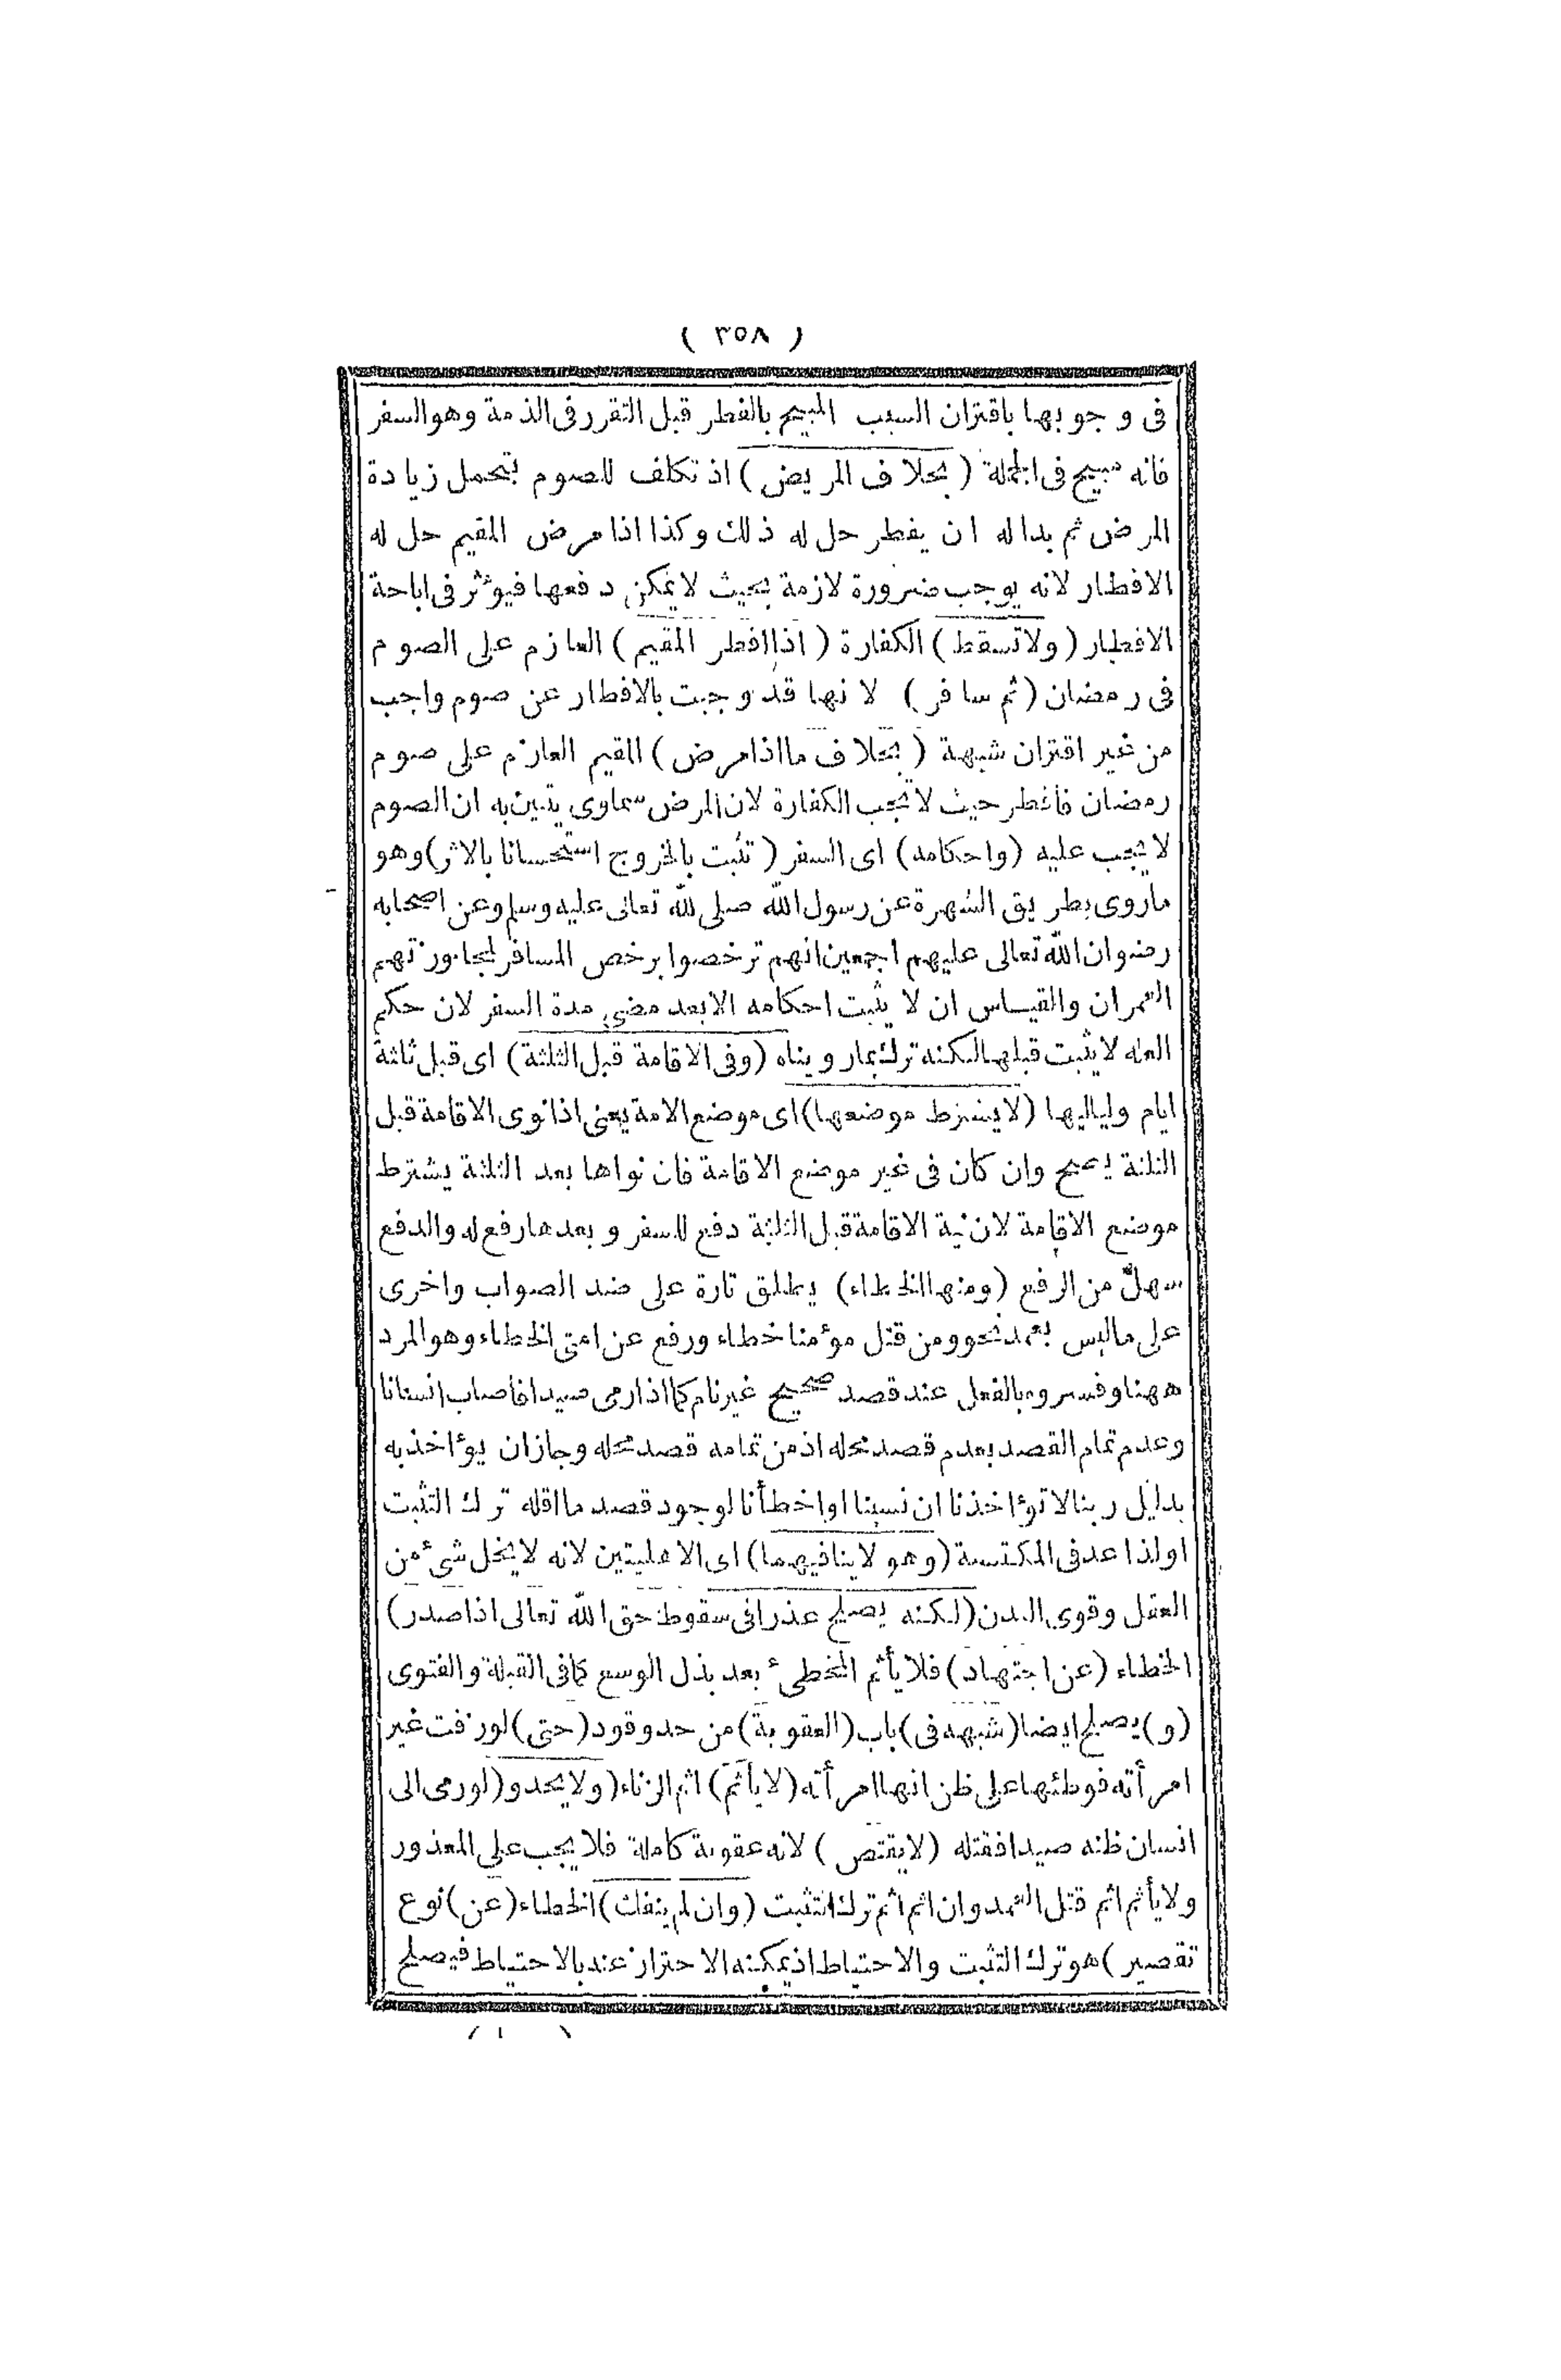 ( ٣٥٨ )
فى و جو بها باقتران السبب المبيح بالفطر قبل التقرر فى الذمة وهو السفر
فانه مبيح فى الجملة ( بخلا ف المر يض ) اذ تكلف للصوم بتحمل زيا دة
المر ض ثم بدا له ا ن يفطر حل له ذ لك وكذا اذا مرض المقيم حل له
الافطار لانه يوجب ضرورة لازمة بحيث لايمكن د فعها فيؤثر فى اباحة
الافطار ( ولاتسقط ) الكفارة ( اذاافطر المقيم ) العا زم على الصو م
فى ر مضان ( ثم سا فر ) لا نها قد و جبت بالافطار عن صوم واجب
من غير اقتران شبهة ( بخلا ف مااذامرض ) المقيم العازم على صو م
رمضان فافطر حيث لاتجب الكفارة لان المرض سماوى يتبين به ان الصوم
لا يجب عليه (واحكامه) اى السفر ( تثبت بالخروج استحسانا بالاثر) وهو
ماروى بطر يق الشهرة عن رسول الله صلى لله تعالى عليه وسلم وعن اصحابه
رضوان الله تعالى عليهم اجمعين انهم ترخصوا برخص المسافر لمجاوزتهم
العمران والقياس ان لا يثبت احكامه الابعد مضى مدة السفر لان حكم
العله لايثبت قبلها لكنه ترك بمار و يناه (وفى الاقامة قبل الثلثة) اى قبل ثلثة
ايام ولياليها (لايشترط موضعها) اى موضع الامة يعنى اذانوى الاقامة قبل
الثلثة يصح وان كان فى غير موضع الاقامة فان نواها بعد الثلثة يشترط
موضع الاقامة لان نية الاقامة قبل الثلثة دفع للسفر و بعدها رفع له والدفع
سهل من الرفع (ومنها الخطاء) يطلق تارة على ضد الصواب واخرى
على ماليس بعمد نحو ومن قتل مؤمنا خطاء ورفع عن امتى الخطاء وهو المرد
ههنا وفسروه بالفعل عند قصد صحيح غيرتام كمااذارمى صيدا فاصاب انسانا
وعدم تمام القصد بعدم قصد محله اذ من تمامه قصد محله وجازان يؤاخذ به
بدليل ربنا لا تؤاخذنا ان نسينا اواخطأنا لوجود قصد مااقله تر ك التثبت
اولذا عد فى المكتسبة (وهو لاينافيهما) اى الاهليتين لانه لايخل شئ من
العقل وقوى البدن (لكنه يصلح عذرا فى سقوط حق الله تعالى اذا صدر)
الخطاء (عن اجتهاد) فلا يأثم المخطئ بعد بذل الوسع كمافى القبلة والفتوى
(و) يصلح ايضا (شبهه فى) باب (العقوبة) من حد وقود (حتى) لوزفت غير
امرأته فوطئها على ظن انها امرأته (لايأثم) اثم الزناء (ولايحدو (لورمى الى
انسان ظنه صيدا فقتله (لايقتص ) لانه عقوبة كاملة فلا يجب على المعذور
ولايأثم اثم قتل العمد وان اثم اثم ترك التثبت (وان لم ينفك) الخطاء (عن) نوع
تقصير) هو ترك التثبت والاحتياط اذ يمكنه الاحتراز عند بالاحتياط فيصلح